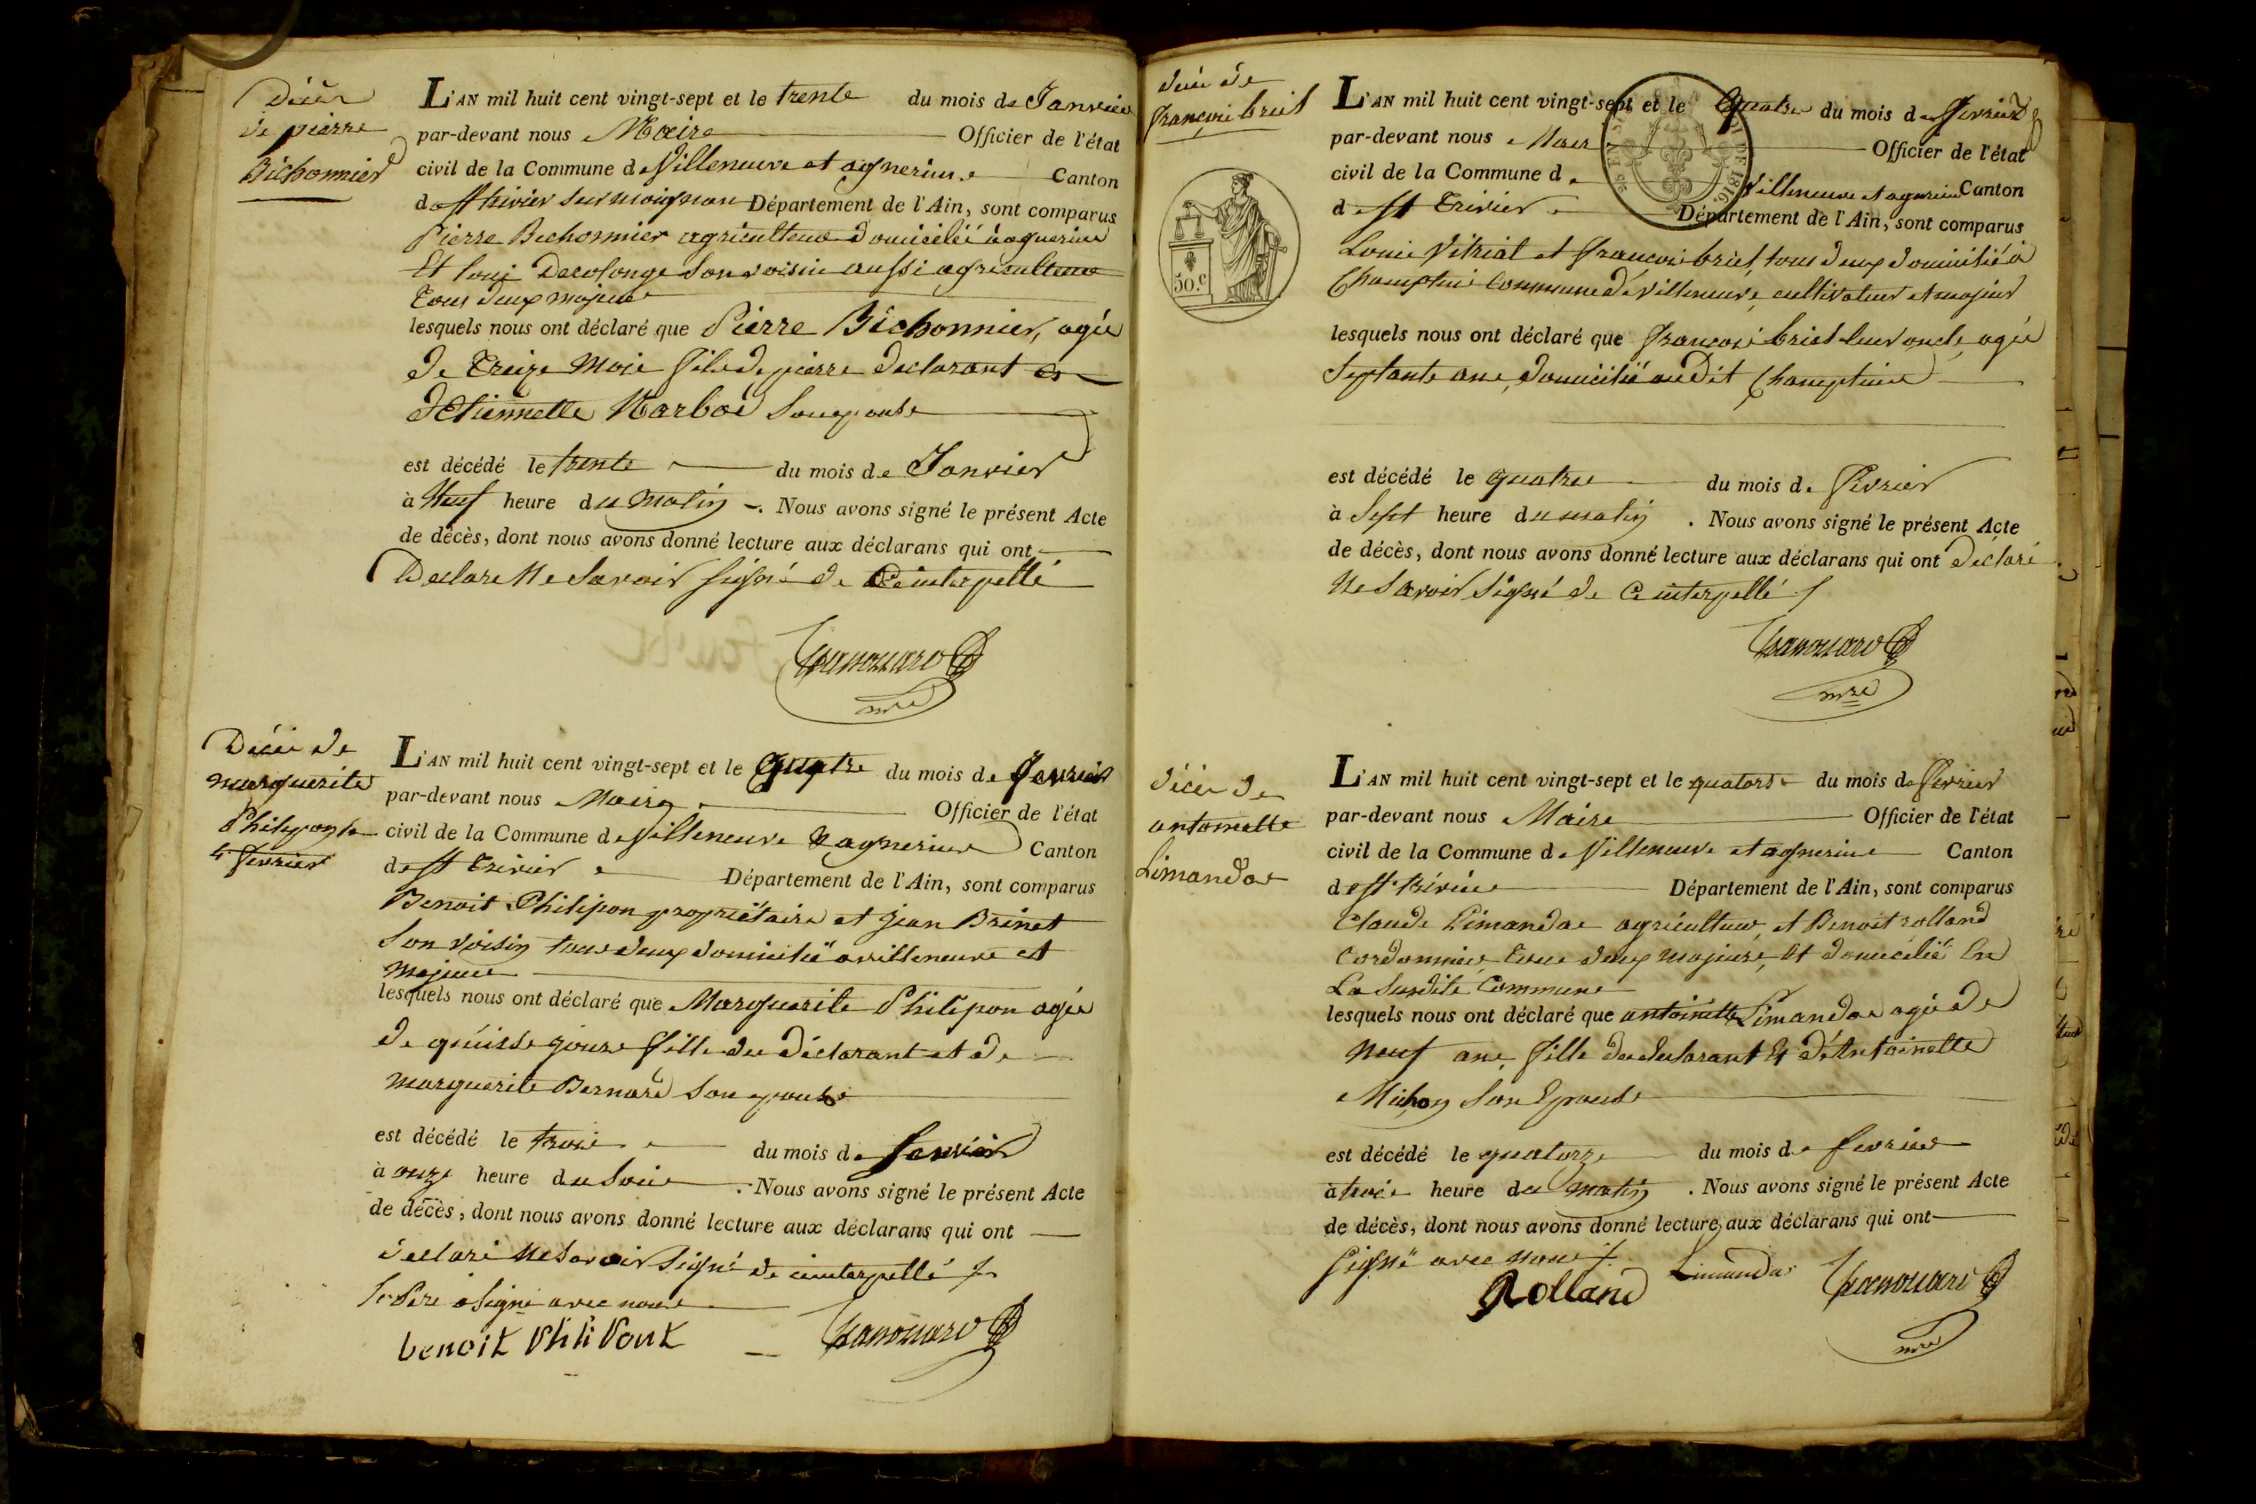 Décès
de pierre
Bichonnier
L'AN mil huit cent vingt-sept et le trente du mois de Janvier
par-devant nous Maire Officier de l'état
civil de la Commune de Villeneuve et agnerins Canton
de St trivier sur moignan Département de l'Ain, sont comparus
Pierre Bichonnier agriculteur domicilié à agnerins
Et louis Decolonge son voisin aussi agriculteur
tous deux majeurs
lesquels nous ont déclaré que Pierre Bichonnier, agée
de treize mois fils de pierre declarant et
d'Etiennette Marboé son epouse
est décédé le trente du mois de Janvier
à Neuf heure du matin. Nous avons signé le présent Acte
de décès, dont nous avons donné lecture aux déclarans qui ont
Declare Ne Savoir signé de Ce interpellé
mre
Décès de
marguerite
Philipon
4 fevrier
L'AN mil huit cent vingt-sept et le quatre du mois de fevrier
par-devant nous Maire Officier de l'état
civil de la Commune de Villeneuve & agnerins Canton
de St trivier Département de l'Ain, sont comparus
Benoit Philipon propriétaire et jean Brinet
son voisin tous deux domicilié a villeneuve et
majeurs
lesquels nous ont déclaré que Marguerite Philipon agée
de quinse jours fille du déclarant et de
marguerite Bernard son epouse
est décédé le trois du mois de fevrier
à onze heure du soir. Nous avons signé le présent Acte
de décès, dont nous avons donné lecture aux déclarans qui ont
declaré ne savoir signé de ce interpellé
le Père a signé avec nous
benoit Philipont
décès de
françois briel
50.C
DE 1816
L'AN mil huit cent vingt-sept et le quatre du mois de fevrier
par-devant nous Maire Officier de l'état
civil de la Commune de Villeneuve et agnerins Canton
de St trivier Département de l'Ain, sont comparus
Louis Vitriat et françois briel, tous deux domicilié à
Champtin Commune de villeneuve, cultivateur et majeurs
lesquels nous ont déclaré que françois briel leur oncle, agée
septante ans, domicilié au dit Champtin
est décédé le quatre du mois de fevrier
à sept heure du matin. Nous avons signé le présent Acte
de décès, dont nous avons donné lecture aux déclarans qui ont declaré
Ne savoir signé de Ce interpellé
mre
décès de
antoinette
Limandas
L'AN mil huit cent vingt-sept et le quatorse du mois de fevrier
par-devant nous Maire Officier de l'état
civil de la Commune de Villeneuve et agnerins Canton
de St trivier Département de l'Ain, sont comparus
Claude Limandas agriculteur, et Benoit rolland
Cordonnier tous deux majeurs, et domicilié en
La susdite Commune
lesquels nous ont déclaré que antoinette Limandas agée de
neuf ans, fille du declarant & d'Antoinette
Michon son Epouse
est décédé le quatorze du mois de fevrier
à trois heure du matin. Nous avons signé le présent Acte
de décès, dont nous avons donné lecture aux déclarans qui ont
signé avec nous
Rolland Limandas
mre